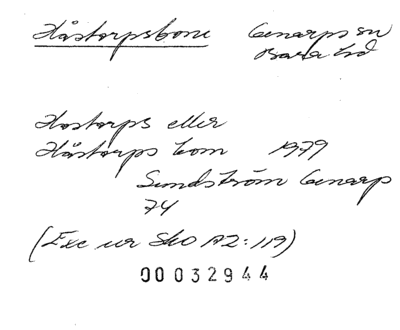 Håstorpsbone Genarps sn
Bara hd
Hostorps eller
Håstorps bom 1979
Sundström Genarp
74
(Exc ur Sko A2:119)
00032944